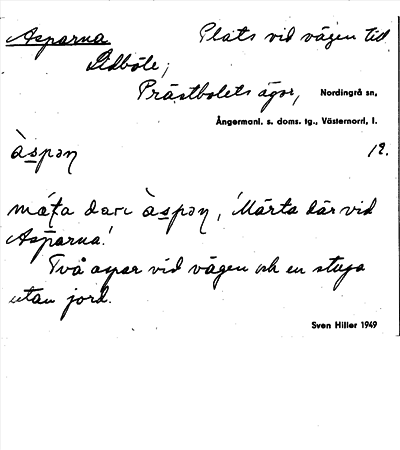 Asparna Plats vid vägen till
Lidböle,
Prästbolets ägor, Nordingrå sn,
Ångermanl. s. doms. tg., Västernorrl. l.
àspəɳ 12.
máʈa dar àspəɳ, 'Märta där vid
Asparna'.
Två aspar vid vägen och en stuga
utan jord.
Sven Hiller 1949